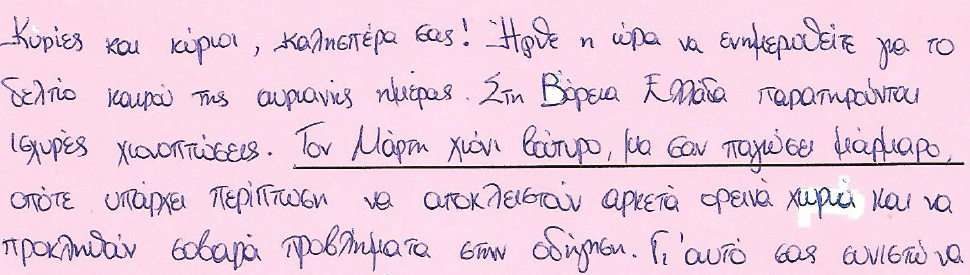 Κυρίες και κύριοι, καλησπέρα σας! Ήρθε η ώρα να ενημερωθείτε για το
δελτίο καιρού της αυριανής ημέρας. Στη Βόρεια Ελλάδα παρατηρούνται
ισχυρές χιονοπτώσεις. Τον Μάρτη χιόνι βούτυρο, μα σαν παγώσει μάρμαρο,
οπότε υπάρχει περίπτωση να αποκλειστούν αρκετά ορεινά χωριά και να
προκληθούν σοβαρά προβλήματα στην οδήγηση. Γι'αυτό σας συνιστώ να